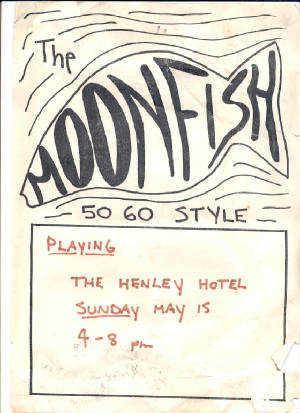 The
MOONFISH
50 60 STYLE
PLAYING
THE HENLEY HOTEL
SUNDAY MAY 15
4-8 pm